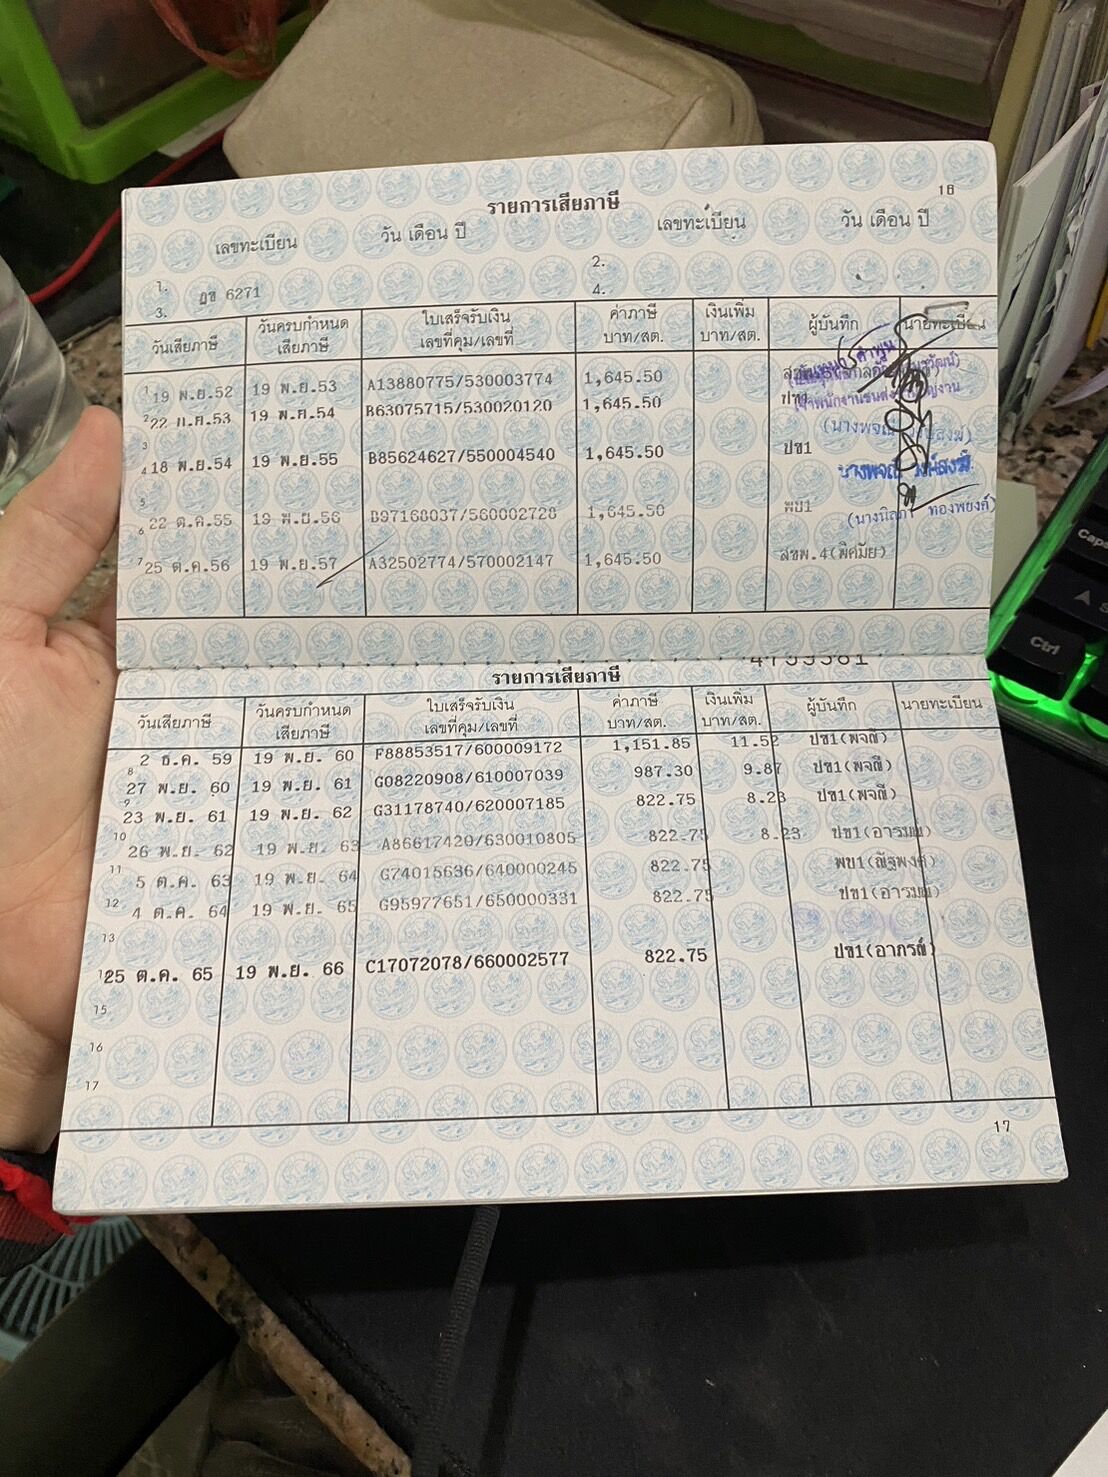 16
รายการเสียภาษี
เลขทะเบียน วัน เดือน ปี เลขทะเบียน วัน เดือน ปี
1. 2.
ฎช 6271
3. 4.
วันเสียภาษี วันครบกำหนดเสียภาษี ใบเสร็จรับเงิน เลขที่คุม/เลขที่ ค่าภาษี บาท/สต. เงินเพิ่ม บาท/สต. ผู้บันทึก นายทะเบียน
1 19 พ.ย.52 19 พ.ย.53 A13880775/530003774 1,645.50
2 22 ก.ค.53 19 พ.ค.54 B63075715/530020120 1,645.50
3
4 18 พ.ย.54 19 พ.ย.55 B85624627/550004540 1,645.50 ปช1
5
6 22 ต.ค.55 19 พ.ย.56 B97168037/560002728 1,645.50 พบ1
7 25 ต.ค.56 19 พ.ย.57 A32502774/570002147 1,645.50 สขพ.4(พิศมัย)
4759561
รายการเสียภาษี
วันเสียภาษี วันครบกำหนดเสียภาษี ใบเสร็จรับเงิน เลขที่คุม/เลขที่ ค่าภาษี บาท/สต. เงินเพิ่ม บาท/สต. ผู้บันทึก นายทะเบียน
2 ธ.ค. 59 19 พ.ย. 60 F88853517/600009172 1,151.85 11.52 ปข1(พจณี)
8
27 พ.ย. 60 19 พ.ย. 61 G08220908/610007039 987.30 9.87 ปข1(พจณี)
9
23 พ.ย. 61 19 พ.ย. 62 G31178740/620007185 822.75 8.23 ปข1(พจณี)
10
26 พ.ย. 62 19 พ.ย. 63 A86617420/630010805 822.75 8.23 ปข1(อารมณ์)
11
5 ต.ค. 63 19 พ.ย. 64 G74015636/640000245 822.75 พบ1(ณัฐพงศ์)
12
4 ต.ค. 64 19 พ.ย. 65 G95977651/650000331 822.75 ปข1(อารมณ์)
13
25 ต.ค. 65 19 พ.ย. 66 C17072078/660002577 822.75 ปข1(อาภรณ์)
15
16
17
17
Ctrl